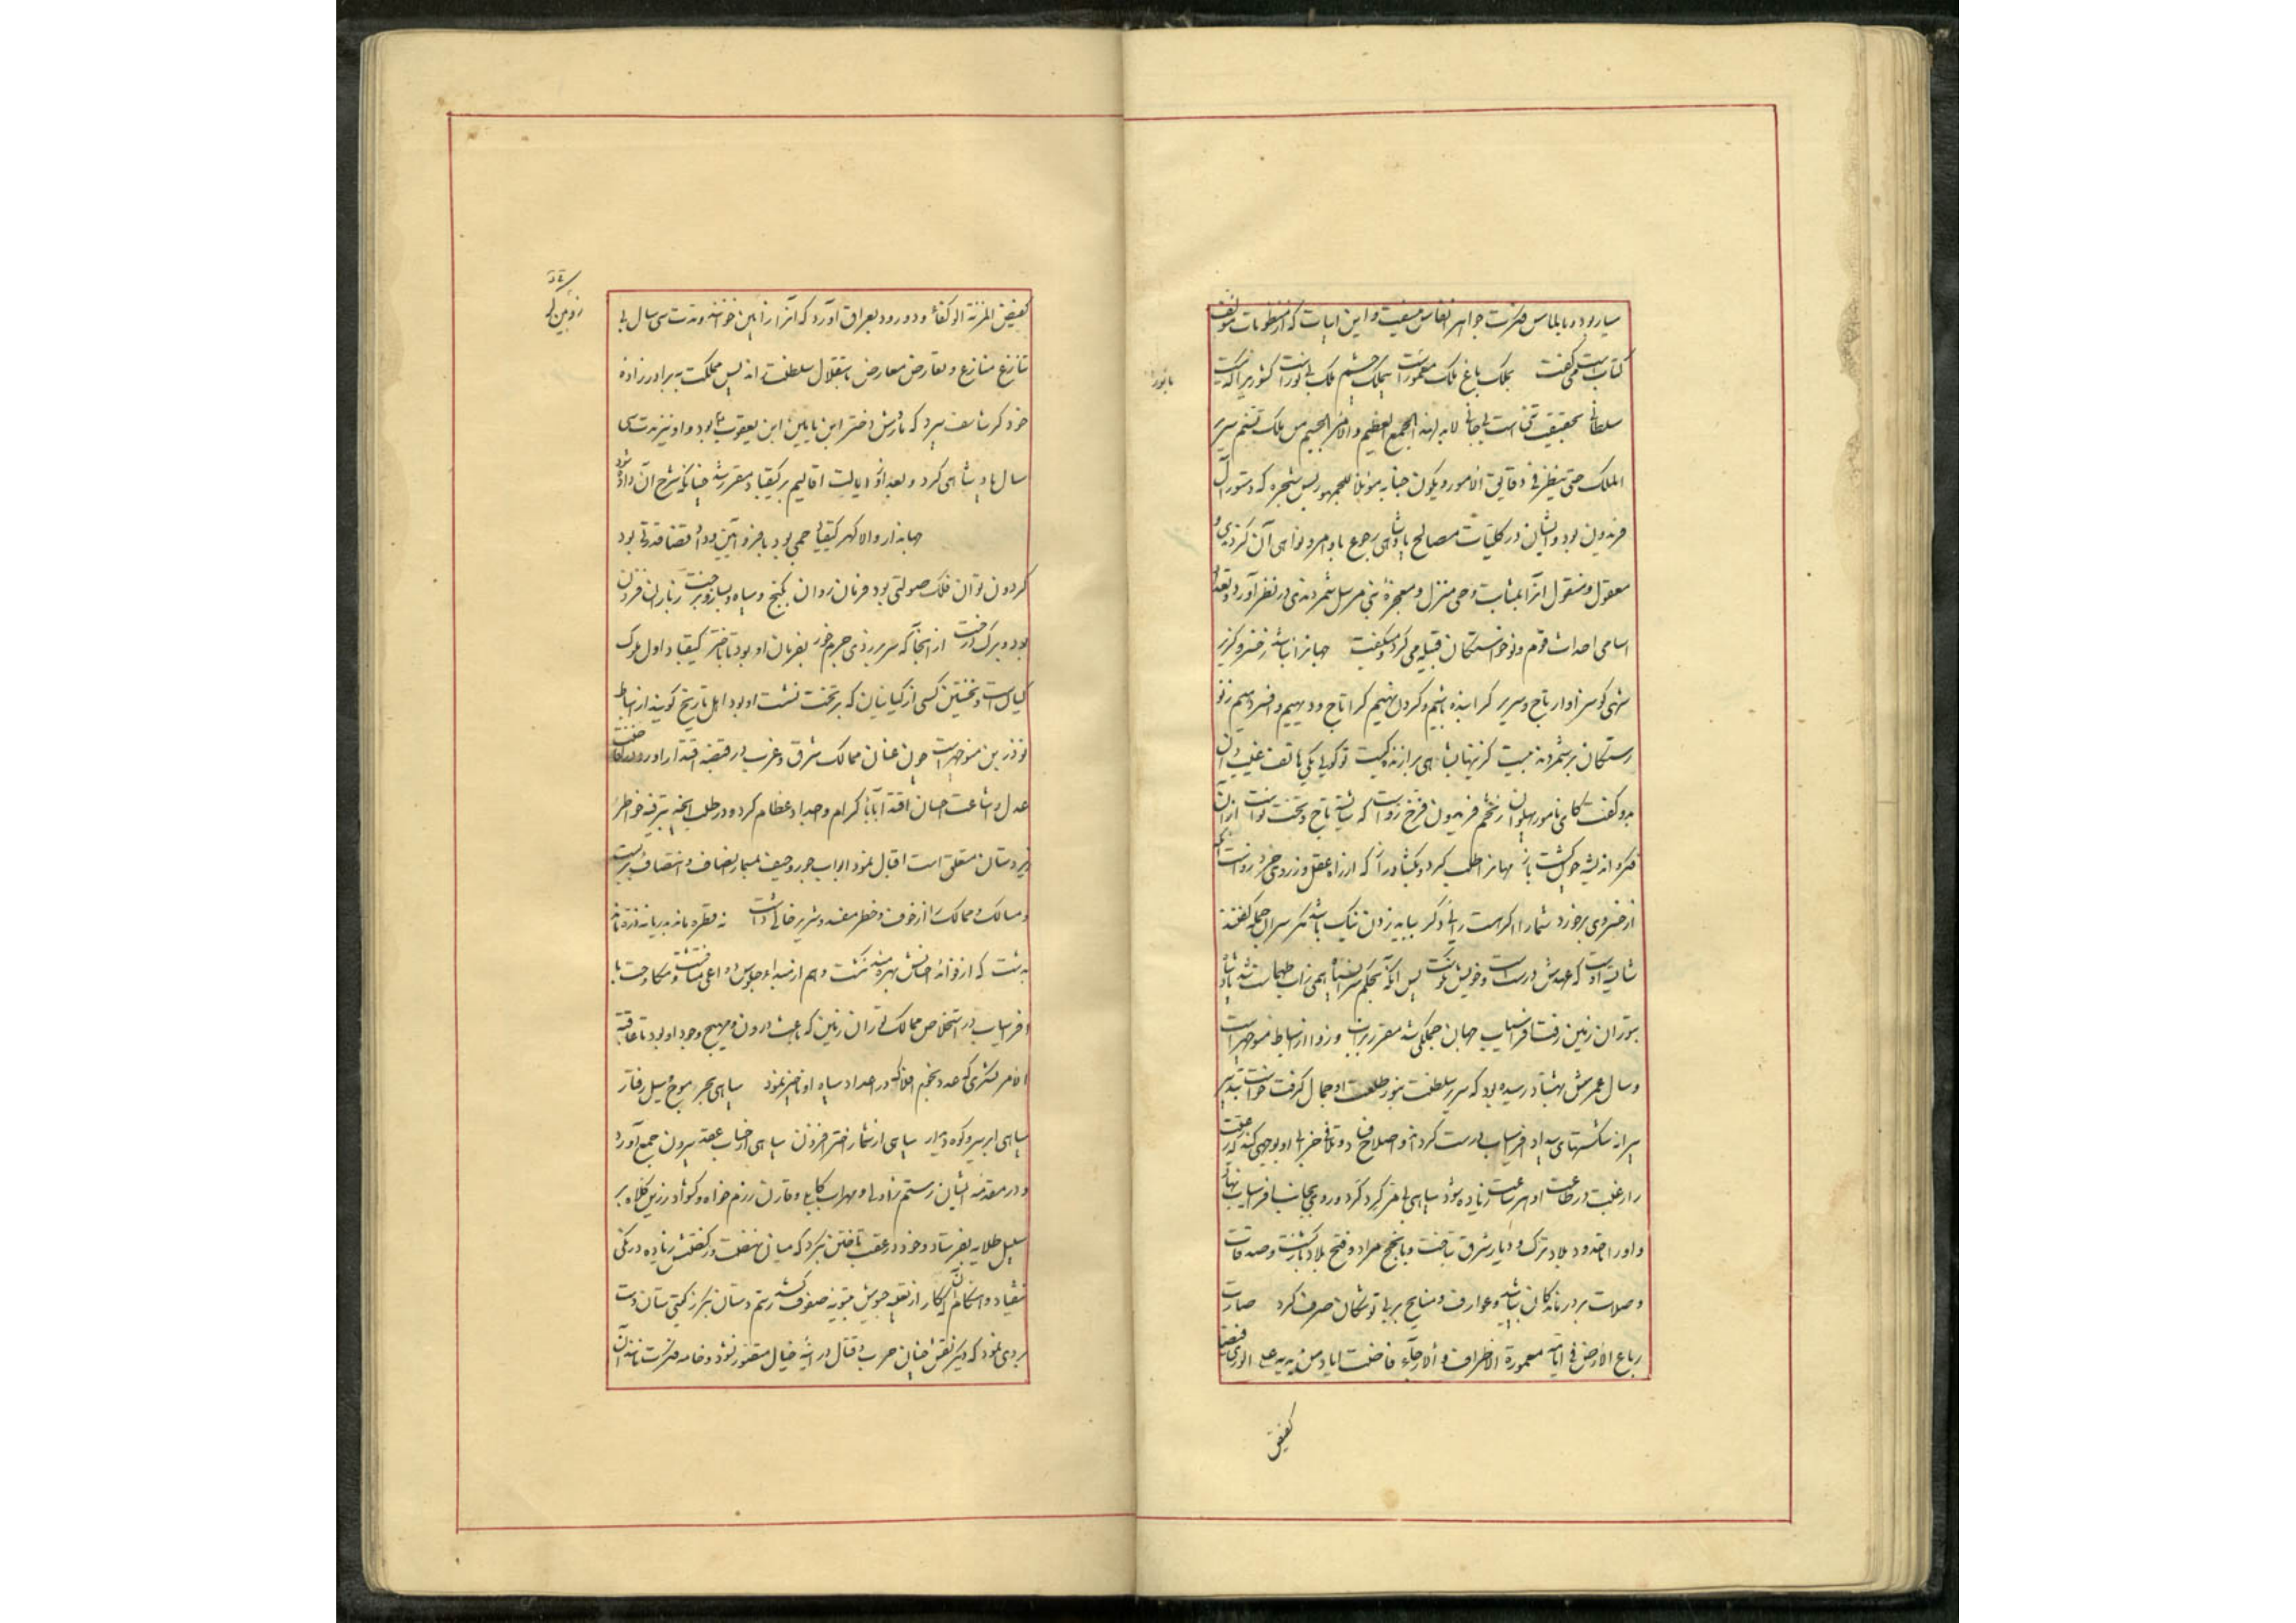 سیارود و بالماس فکرت جواهر انفاس میسفت و این ابیات که از منظومات مؤلف
کتاب است همی گفت بملک باغ ملک معمور است بی ملک چشم ملک بی نور است کشور
سلطانی بحقیقت تنی است بی جانی لابد لهذا الجمع العظیم والامر الجسیم من ملک تسنم سریر
الملک حتی ینظر فی دقایق الامور و یکون جنابه موئلا للجمهور پس شجره که دستور آل
فریدون بود و ایشان در کلیات مصالح پادشاهی رجوع باوامر و نواهی آن کردندی و
معقول و منقول آنرا بمثابت وحی منزل و معجزه نبی مرسل شمردندی در نظر آورد و تعداد
اسامی احداث قوم و نوخواستگان قبیله می کرد و میگفت جهانرا نباشد ز خسرو گزیر
شهی کو سزاوار تاج و سریر کرا بنده باشیم و گردن نهیم کرا تاج و دیهیم و افسر دهیم
رستگان برشمردند بیت کز اینها بشاهی برازنده کیست تو گویی یکی هاتف غیب دان
بدو گفت کای نامور پهلوان ز تخم فریدون فرخ زو است که شایسته تاج و تخت نو است ازان
فکر و اندیشه چون گشت باز مهانرا طلب کرد و بگشاد راز که از راه عقل و ز روی خرد
از خسروی برخورد شمارا اگر هست رایی دگر بیاید زدن نیک باشد مگر سران جمله گفتند
شایسته اوست که عهدش درست است و خویش نکوست پس آنگه بحکم سران سپاه همی زاب طهماسب شد پادشاه
بتوران زمین رفت افراسیاب جهان جملگی شد مقرر بزاب و زو از اسباط منوچهر است
و سال عمرش بهشتاد رسیده بود که سریر سلطنت بنور طلعت او جمال گرفت خواست بتدبیر
پیرانه شکستهای بیداد افراسیاب درست گرداند و اصلاح فساد و تلافی خرابی او بوجهی کند که
را رغبت در طاعت او هر ساعت زیاده شود سپاهی بی مر گرد کرد و روی بجانب افراسیاب نهاد
و او را تا حدود بلاد ترک و دیار شرق بتاخت و بانجح مراد و فتح بلاد بازگشت و صدقات
و صلات بر درماندگان بپاشید و عوارف و منایح بر بی توشگان صرف کرد صارت
رباع الارض فی ایامه معمورة الاطراف والارجاء فاضت ایاد من یدیه علی الوری
کفیض
بانور
کفیض المزنة الوکفاء و دو رود بعراق آورد که آنرا زابین خوانند و مدت سی سال بی
تنازع منازع و تعارض معارض باستقلال سلطنت راند پس مملکت به برادرزاده
خود کرشاسف سپرد که مادرش دختر ابن یامین ابن یعقوب بود و او نیز مدت سی
سال پادشاهی کرد و بعد ازو ایالت اقالیم بر کیقباد مقرر شد چنانکه شرح آن داده شود
جهاندار والا گهر کیقباد جمی بود بافر و آیین و داد قضا قدرتی بود
گردون توان فلک صولتی بود فرمان روان بگنج و سپاه و بساز و برخت ز باران فزون
بود و برگ درخت از آنجا که سر برزدی جرم خور بفرمان او بود تا باختر کیقباد اول ملوک
کیان است و نخستین کسی از کیانیان که بر تخت نشست او بود اهل تاریخ گویند از اسباط
نوذر بن منوچهر است چون عنان ممالک شرق و غرب در قبضه اقتدار او
عدل و اشاعت احسان اقتدا بآباء کرام و اجداد عظام کرد و در طلب آنچه بترفیه خواطر
زیردستان متعلق است اقبال نمود ابواب جور و حیف بمسمار انصاف و انتصاف بربست
و مسالک و ممالک را از خوف و خطر مفسد و شریر خالی داشت نه قطره ماند بدریا نه ذره
بدشت که از فوائد احسانش بهره مند نگشت و هم از مبداء جلوس دواعی مناقشت و مکاوحت با
افراسیاب در استخلاص ممالک توران زمین که باعث درون و مهیج وجد او بود تا عاقبة
الامر لشکری که عدد نجم افلاک در اعداد سپاه او ناچیز نمود سپاهی بحر موج سیل رفتار
سپاهی ابر سیر و کوه دیدار سپاهی از شمار اختر افزون سپاهی از حساب عقد بیرون جمع آورد
و در مقدمه ایشان رستم زاولی و مهراب کابلی و قارن رزم خواه و کشواد زرین کلاه بر
سبیل طلایه بفرستاد و خود در عقب تاختن برکرد که میان نهضت و رکضتش زیاده درنگی
نیفتاد و هنگام آن پیکار از تعبیه جیوش بتسویه صفوف کشید رستم دستان بگرز گیتی ستان دست
بردی نمود که دیگر نقش چنان حرب و قتال در آینه خیال متصور نشود و خامه فکرت مانند آن